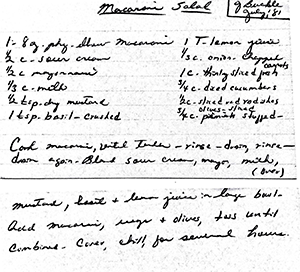 Macaroni Salad
July, '81
1 - 8 oz. pkg. Macaroni
1/2 c - sour cream
1/2 c mayonnaise
1/3 c - milk
1/2 tsp. dry mustard
1 tsp. basil - crushed
1 T - lemon juice
1/3 c. onion - chopped
1 c. thinly sliced carrots
3/4 c - diced cucumbers
1/2 c - sliced red radishes
3/4 c. olives - sliced
Cook macaroni, until tender - rinse - drain, rinse -
drain again - Blend sour cream, mayo, milk,
(Over)
mustard, basil & lemon juice in large bowl -
Add macaroni, vegs & olives, toss until
Combined - Cover, chill, for several hours.